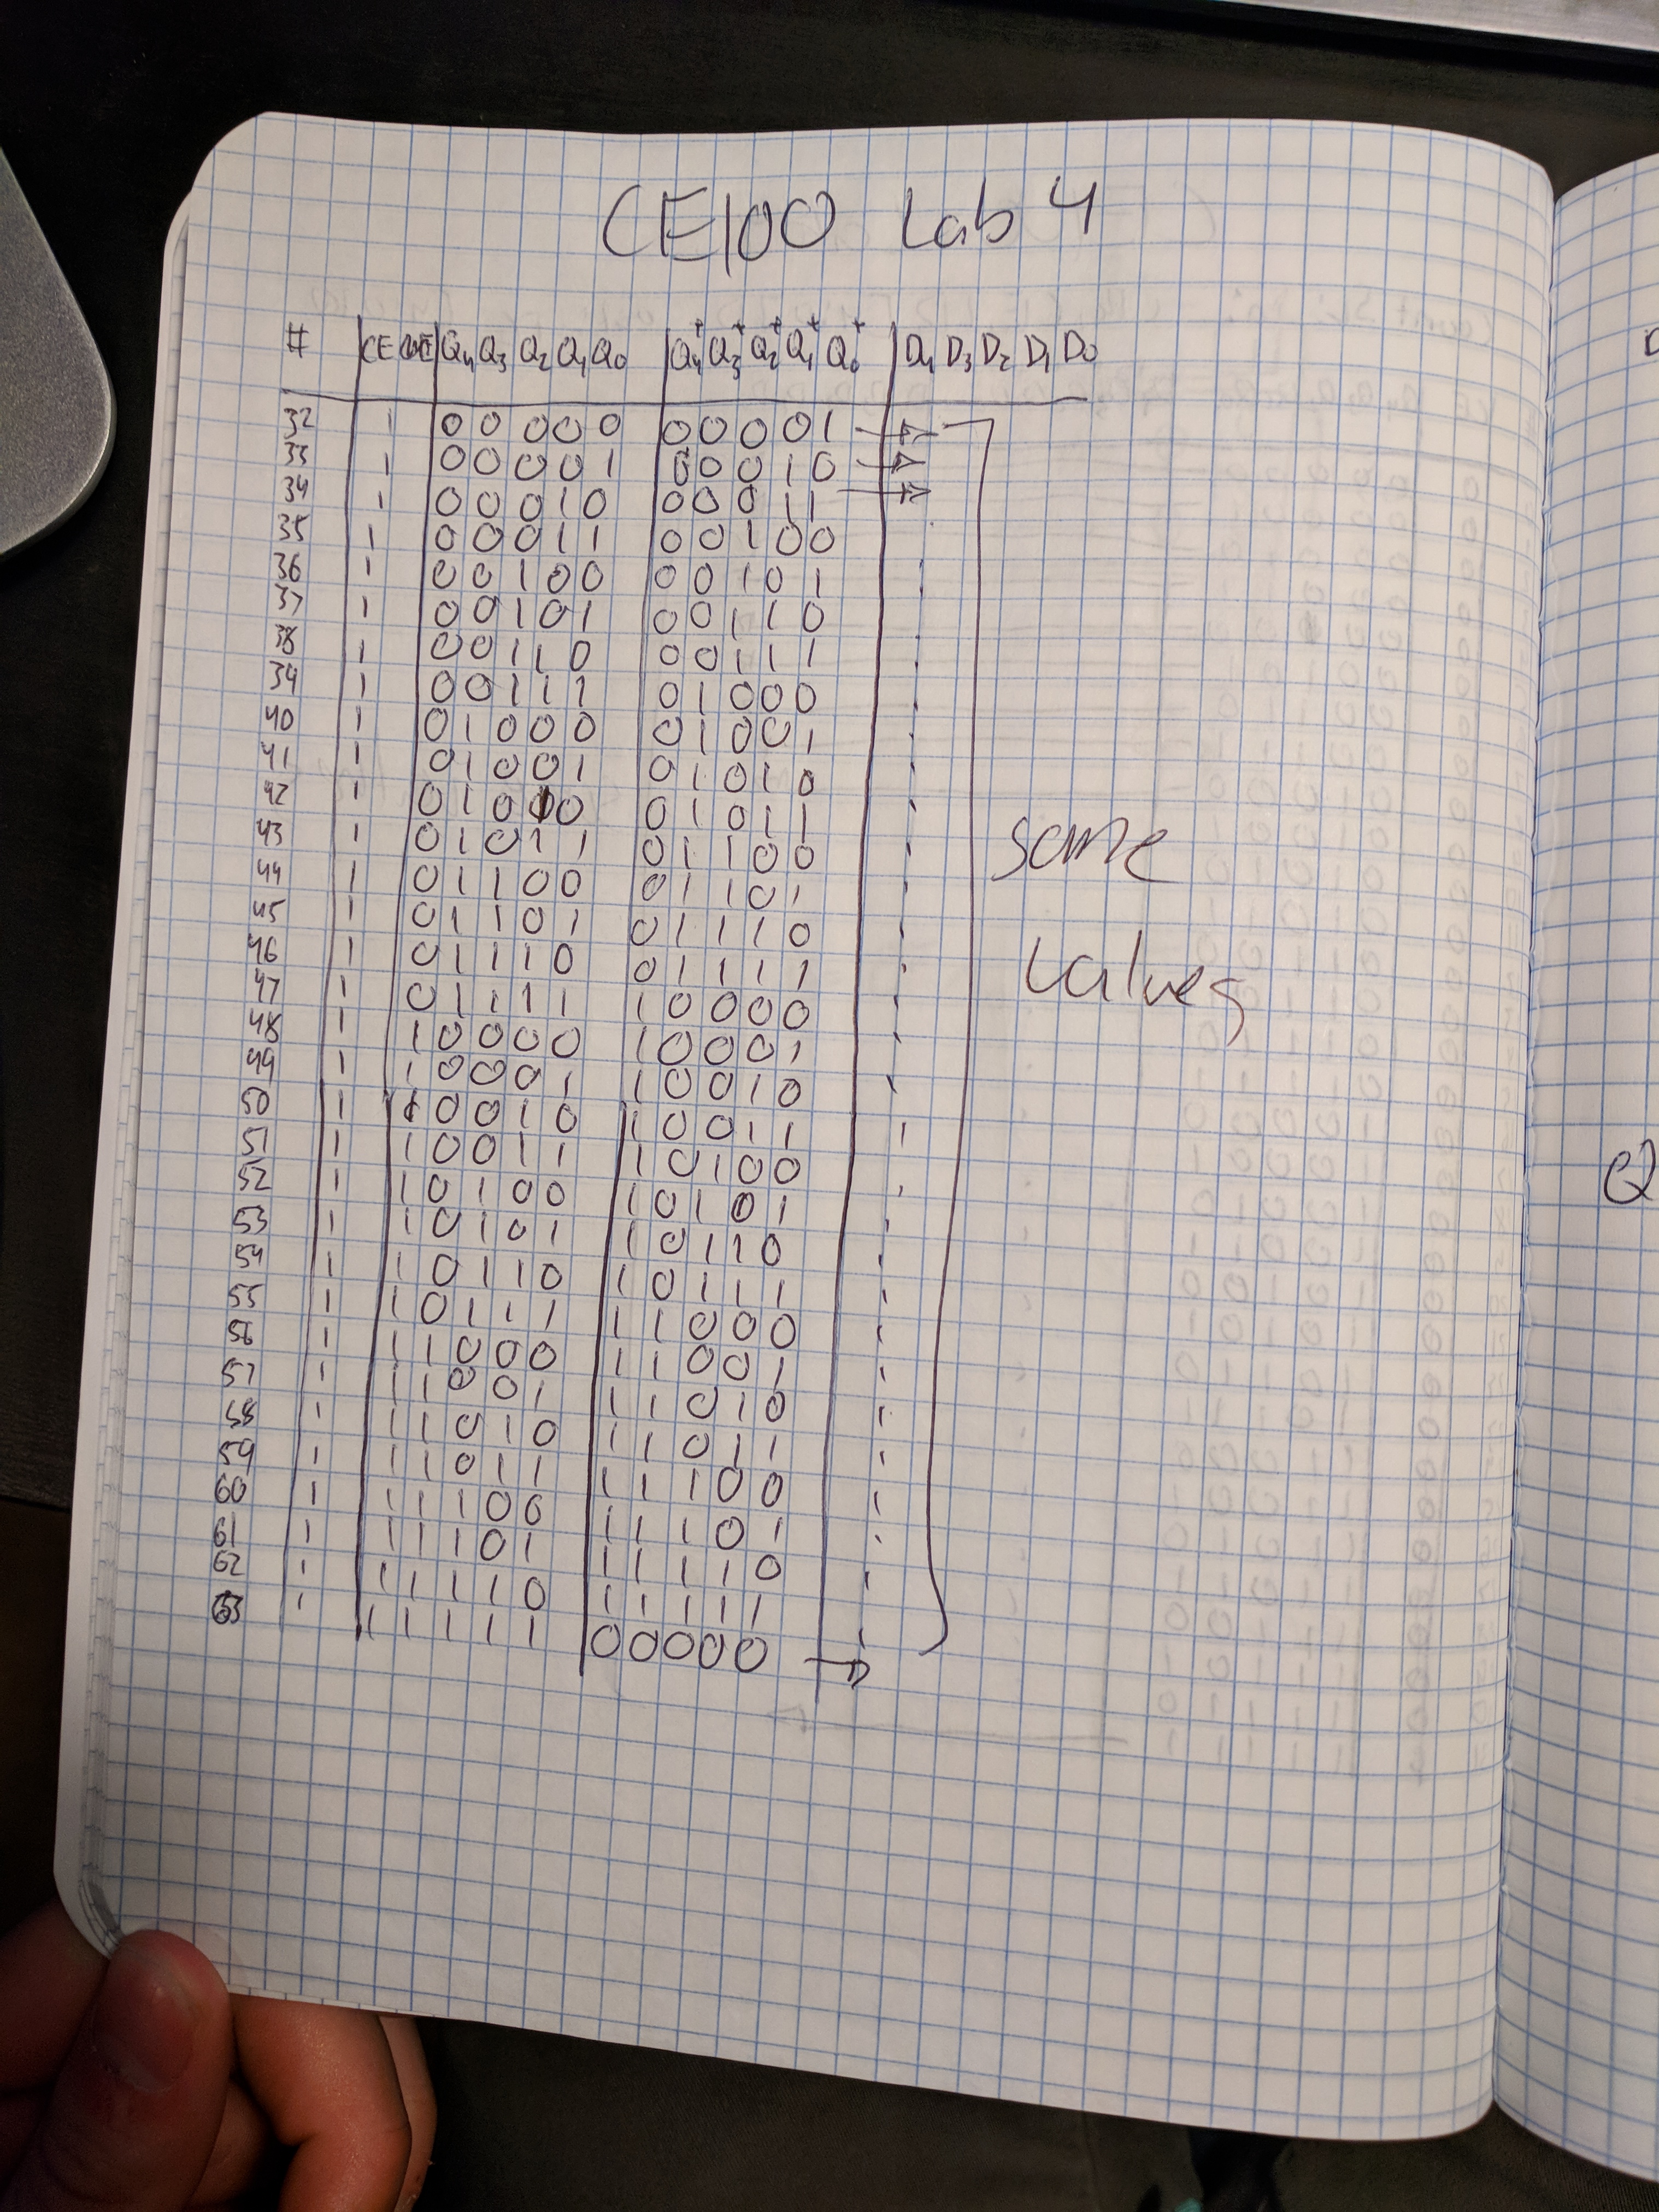 CE100 Lab 4
# CE Q4 Q3 Q2 Q1 Q0 Q4+ Q3+ Q2+ Q1+ Q0+ D4 D3 D2 D1 D0
32 1 0 0 0 0 0 0 0 0 0 1 →
33 1 0 0 0 0 1 0 0 0 1 0 →
34 1 0 0 0 1 0 0 0 0 1 1 →
35 1 0 0 0 1 1 0 0 1 0 0
36 1 0 0 1 0 0 0 0 1 0 1
37 1 0 0 1 0 1 0 0 1 1 0
38 1 0 0 1 1 0 0 0 1 1 1
39 1 0 0 1 1 1 0 1 0 0 0
40 1 0 1 0 0 0 0 1 0 0 1
41 1 0 1 0 0 1 0 1 0 1 0
42 1 0 1 0 1 0 0 1 0 1 1
43 1 0 1 0 1 1 0 1 1 0 0
same
44 1 0 1 1 0 0 0 1 1 0 1
45 1 0 1 1 0 1 0 1 1 1 0
46 1 0 1 1 1 0 0 1 1 1 1
values
47 1 0 1 1 1 1 1 0 0 0 0
48 1 1 0 0 0 0 1 0 0 0 1
49 1 1 0 0 0 1 1 0 0 1 0
50 1 1 0 0 1 0 1 0 0 1 1
51 1 1 0 0 1 1 1 0 1 0 0
52 1 1 0 1 0 0 1 0 1 0 1
53 1 1 0 1 0 1 1 0 1 1 0
54 1 1 0 1 1 0 1 0 1 1 1
55 1 1 0 1 1 1 1 1 0 0 0
56 1 1 1 0 0 0 1 1 0 0 1
57 1 1 1 0 0 1 1 1 0 1 0
58 1 1 1 0 1 0 1 1 0 1 1
59 1 1 1 0 1 1 1 1 1 0 0
60 1 1 1 1 0 0 1 1 1 0 1
61 1 1 1 1 0 1 1 1 1 1 0
62 1 1 1 1 1 0 1 1 1 1 1
63 1 1 1 1 1 1 0 0 0 0 0 →
Q